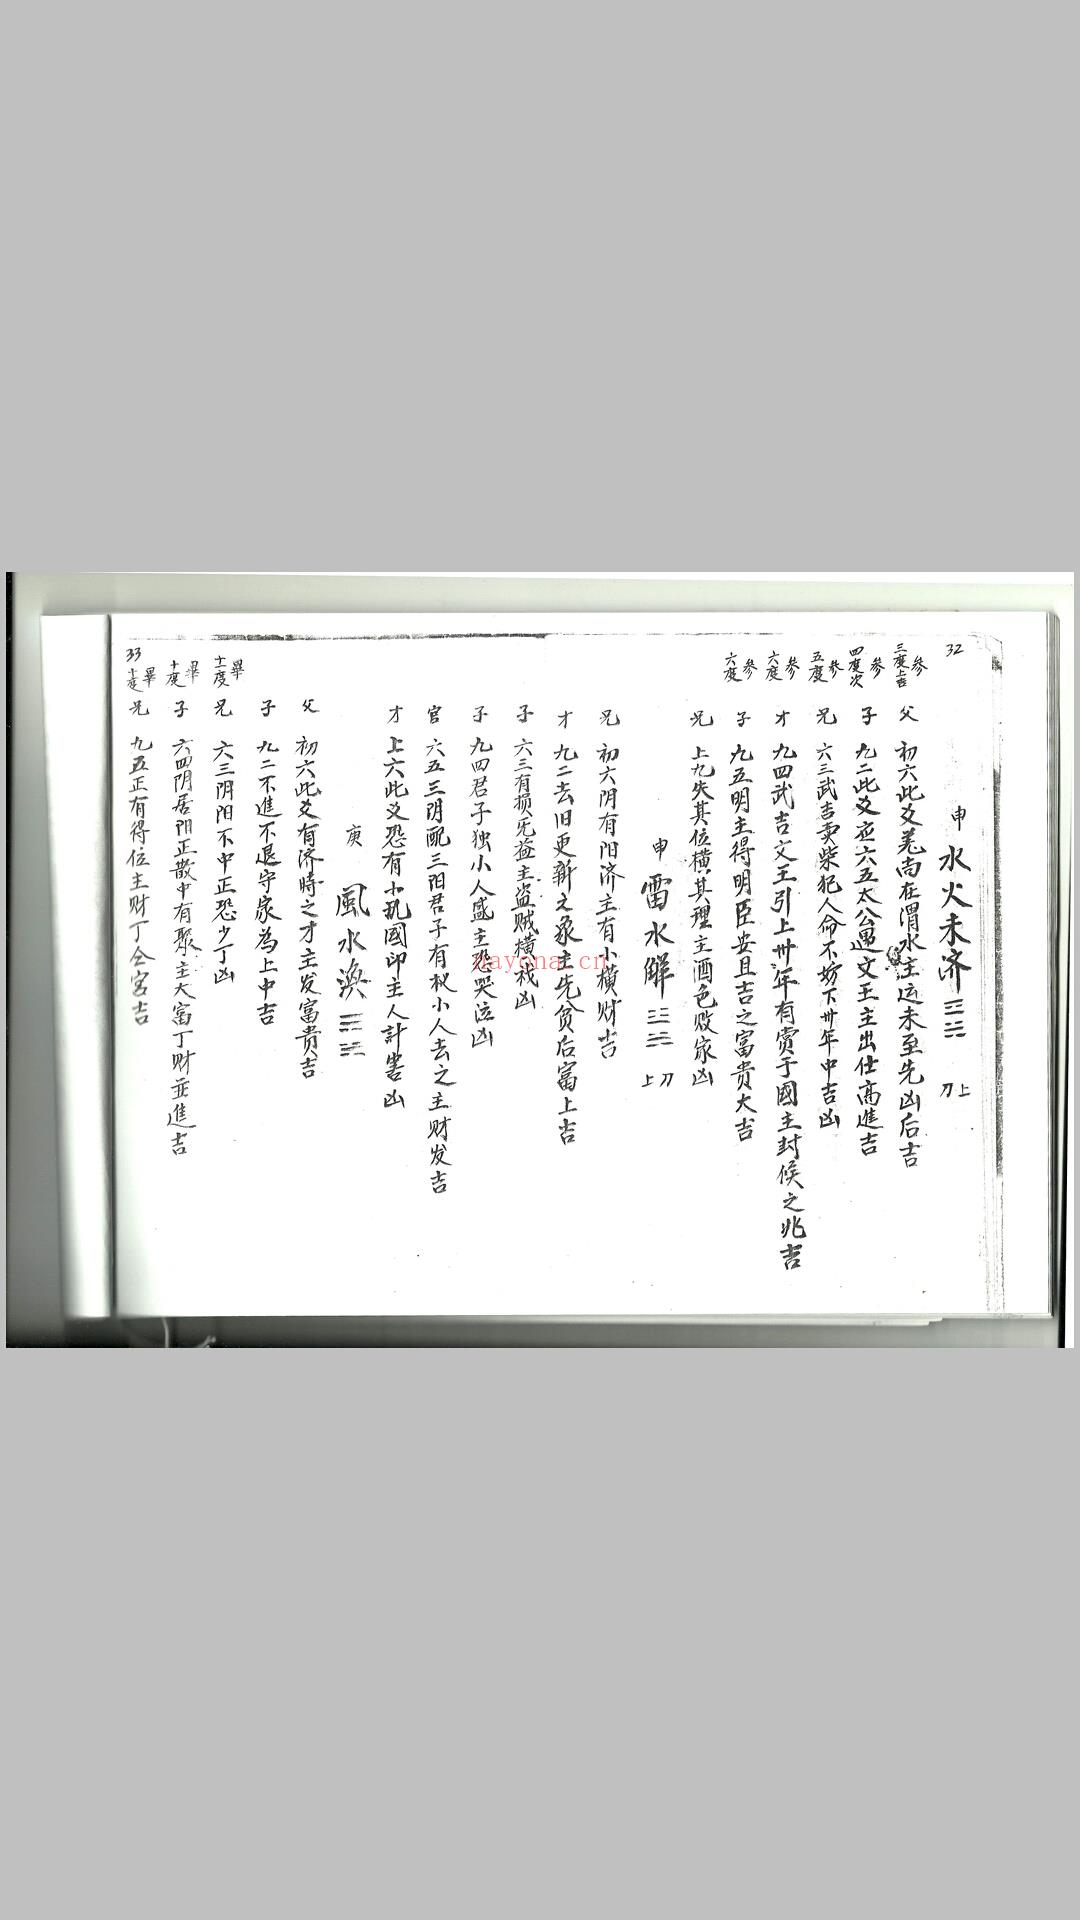 32
申 水火未济 刀上
参 三度上吉 父 初六此爻羌尚在渭水主运未至先凶后吉
参 四度次 子 九二此爻应六五太公遇文王主出仕高進吉
参 五度 兄 六三武吉卖柴犯人命不妨下卅年中吉凶
参 六度 才 九四武吉文王引上卅年有赏于國主封候之兆吉
参 六度 子 九五明主得明臣安且吉之富贵大吉
兄 上九失其位横其理主酒色败家凶
申 雷水解 上刀
兄 初六阴有阳济主有小横财吉
才 九二去旧更新之象主先贫后富上吉
子 六三有损无益主盗贼横祸凶
子 九四君子独小人盛主恐哭泣凶
官 六五三阴配三阳君子有权小人去之主财发吉
才 上六此爻恐有小執國印主人計害凶
庚 風水渙
父 初六此爻有济時之才主发富貴吉
子 九二不進不退守家為上中吉
畢 十一度 兄 六三阴阳不中正恐少丁凶
畢 十度 子 六四阴居阳正散中有聚主大富丁财並進吉
33
畢 十度 兄 九五正有得位主财丁仝宮吉
nayona.cn